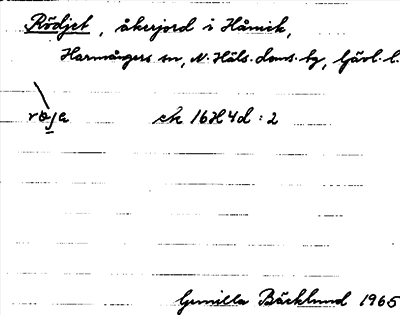 Rödjet, åkerjord i Hånick,
Harmångers sn, N. Häls. doms. by, Gävl. l.
röja ek 16H4d:2
Gunilla Bäcklund 1965